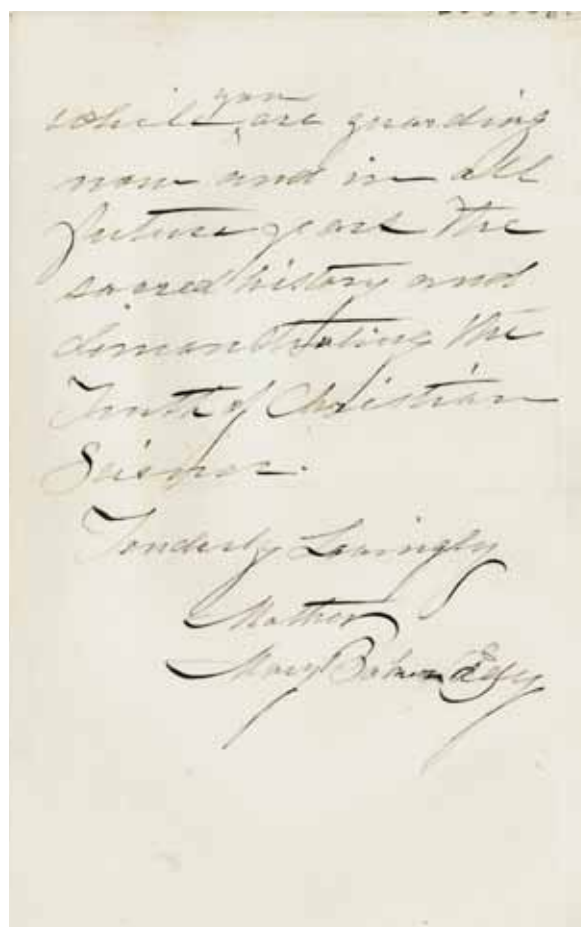 while you are guarding
now and in all
future years the
sacred history and
demonstrating the
Truth of Christian
Science.
Tenderly Lovingly
Mother
Mary Baker Eddy